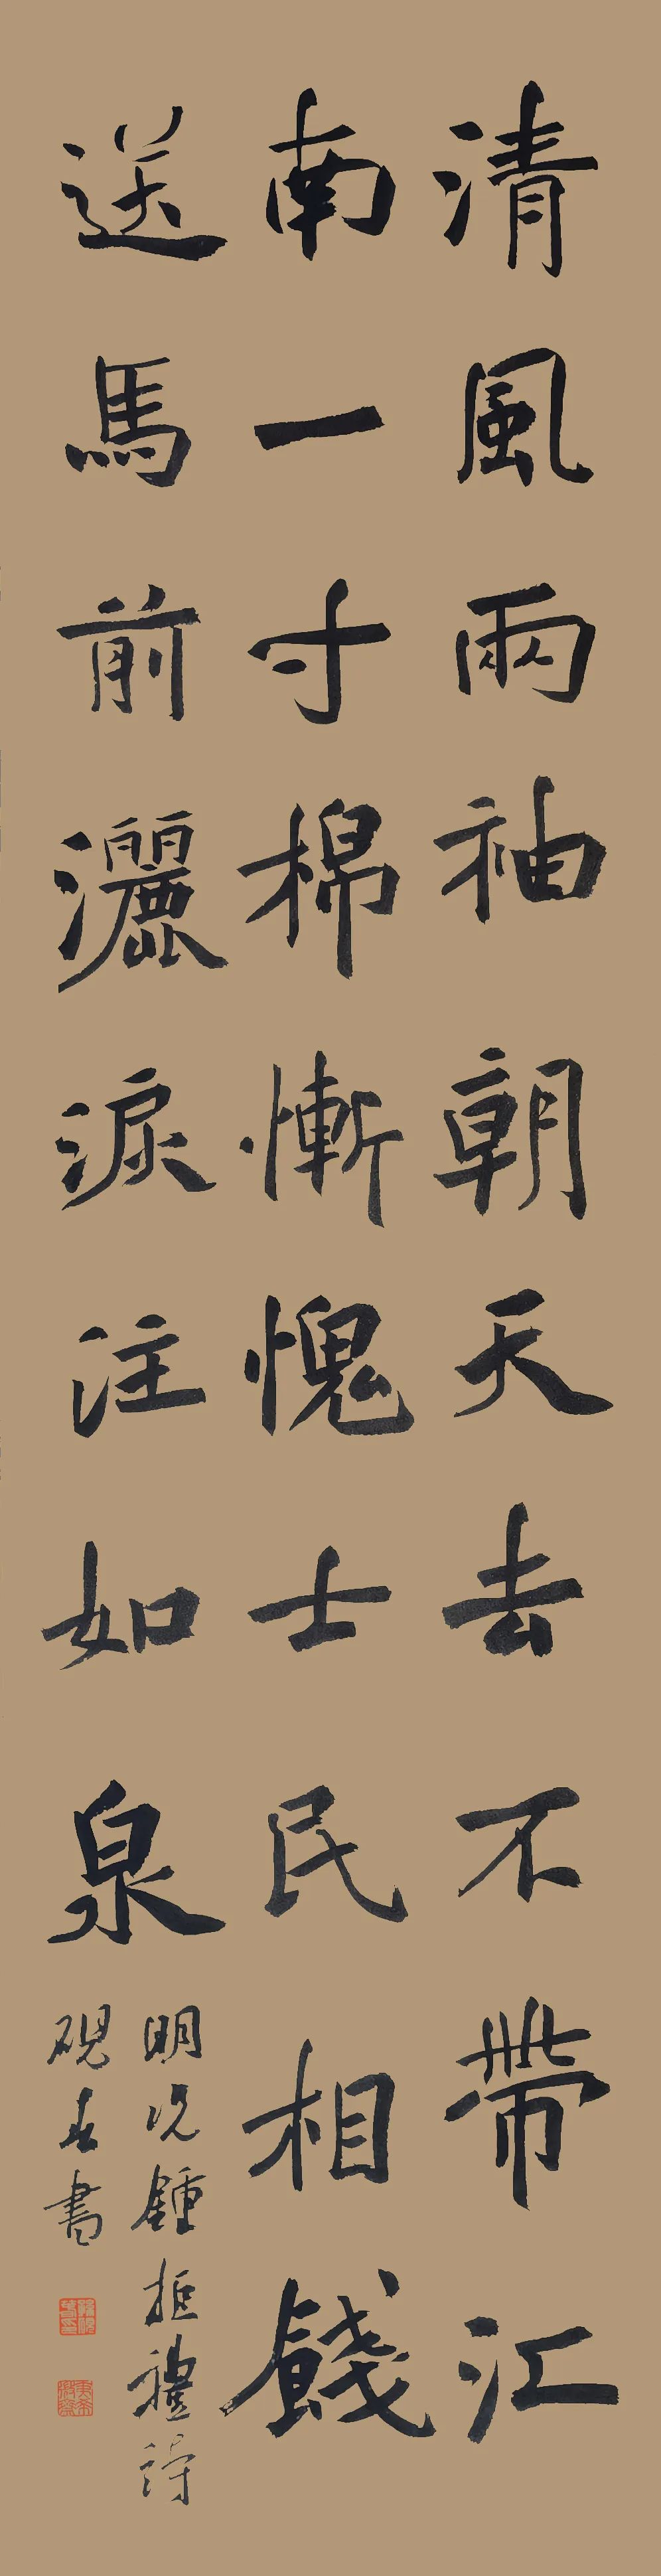 清風兩袖朝天去不帶江
南一寸棉慚愧士民相餞
送馬前灑淚注如泉
明況鍾拒禮詩
硯春書